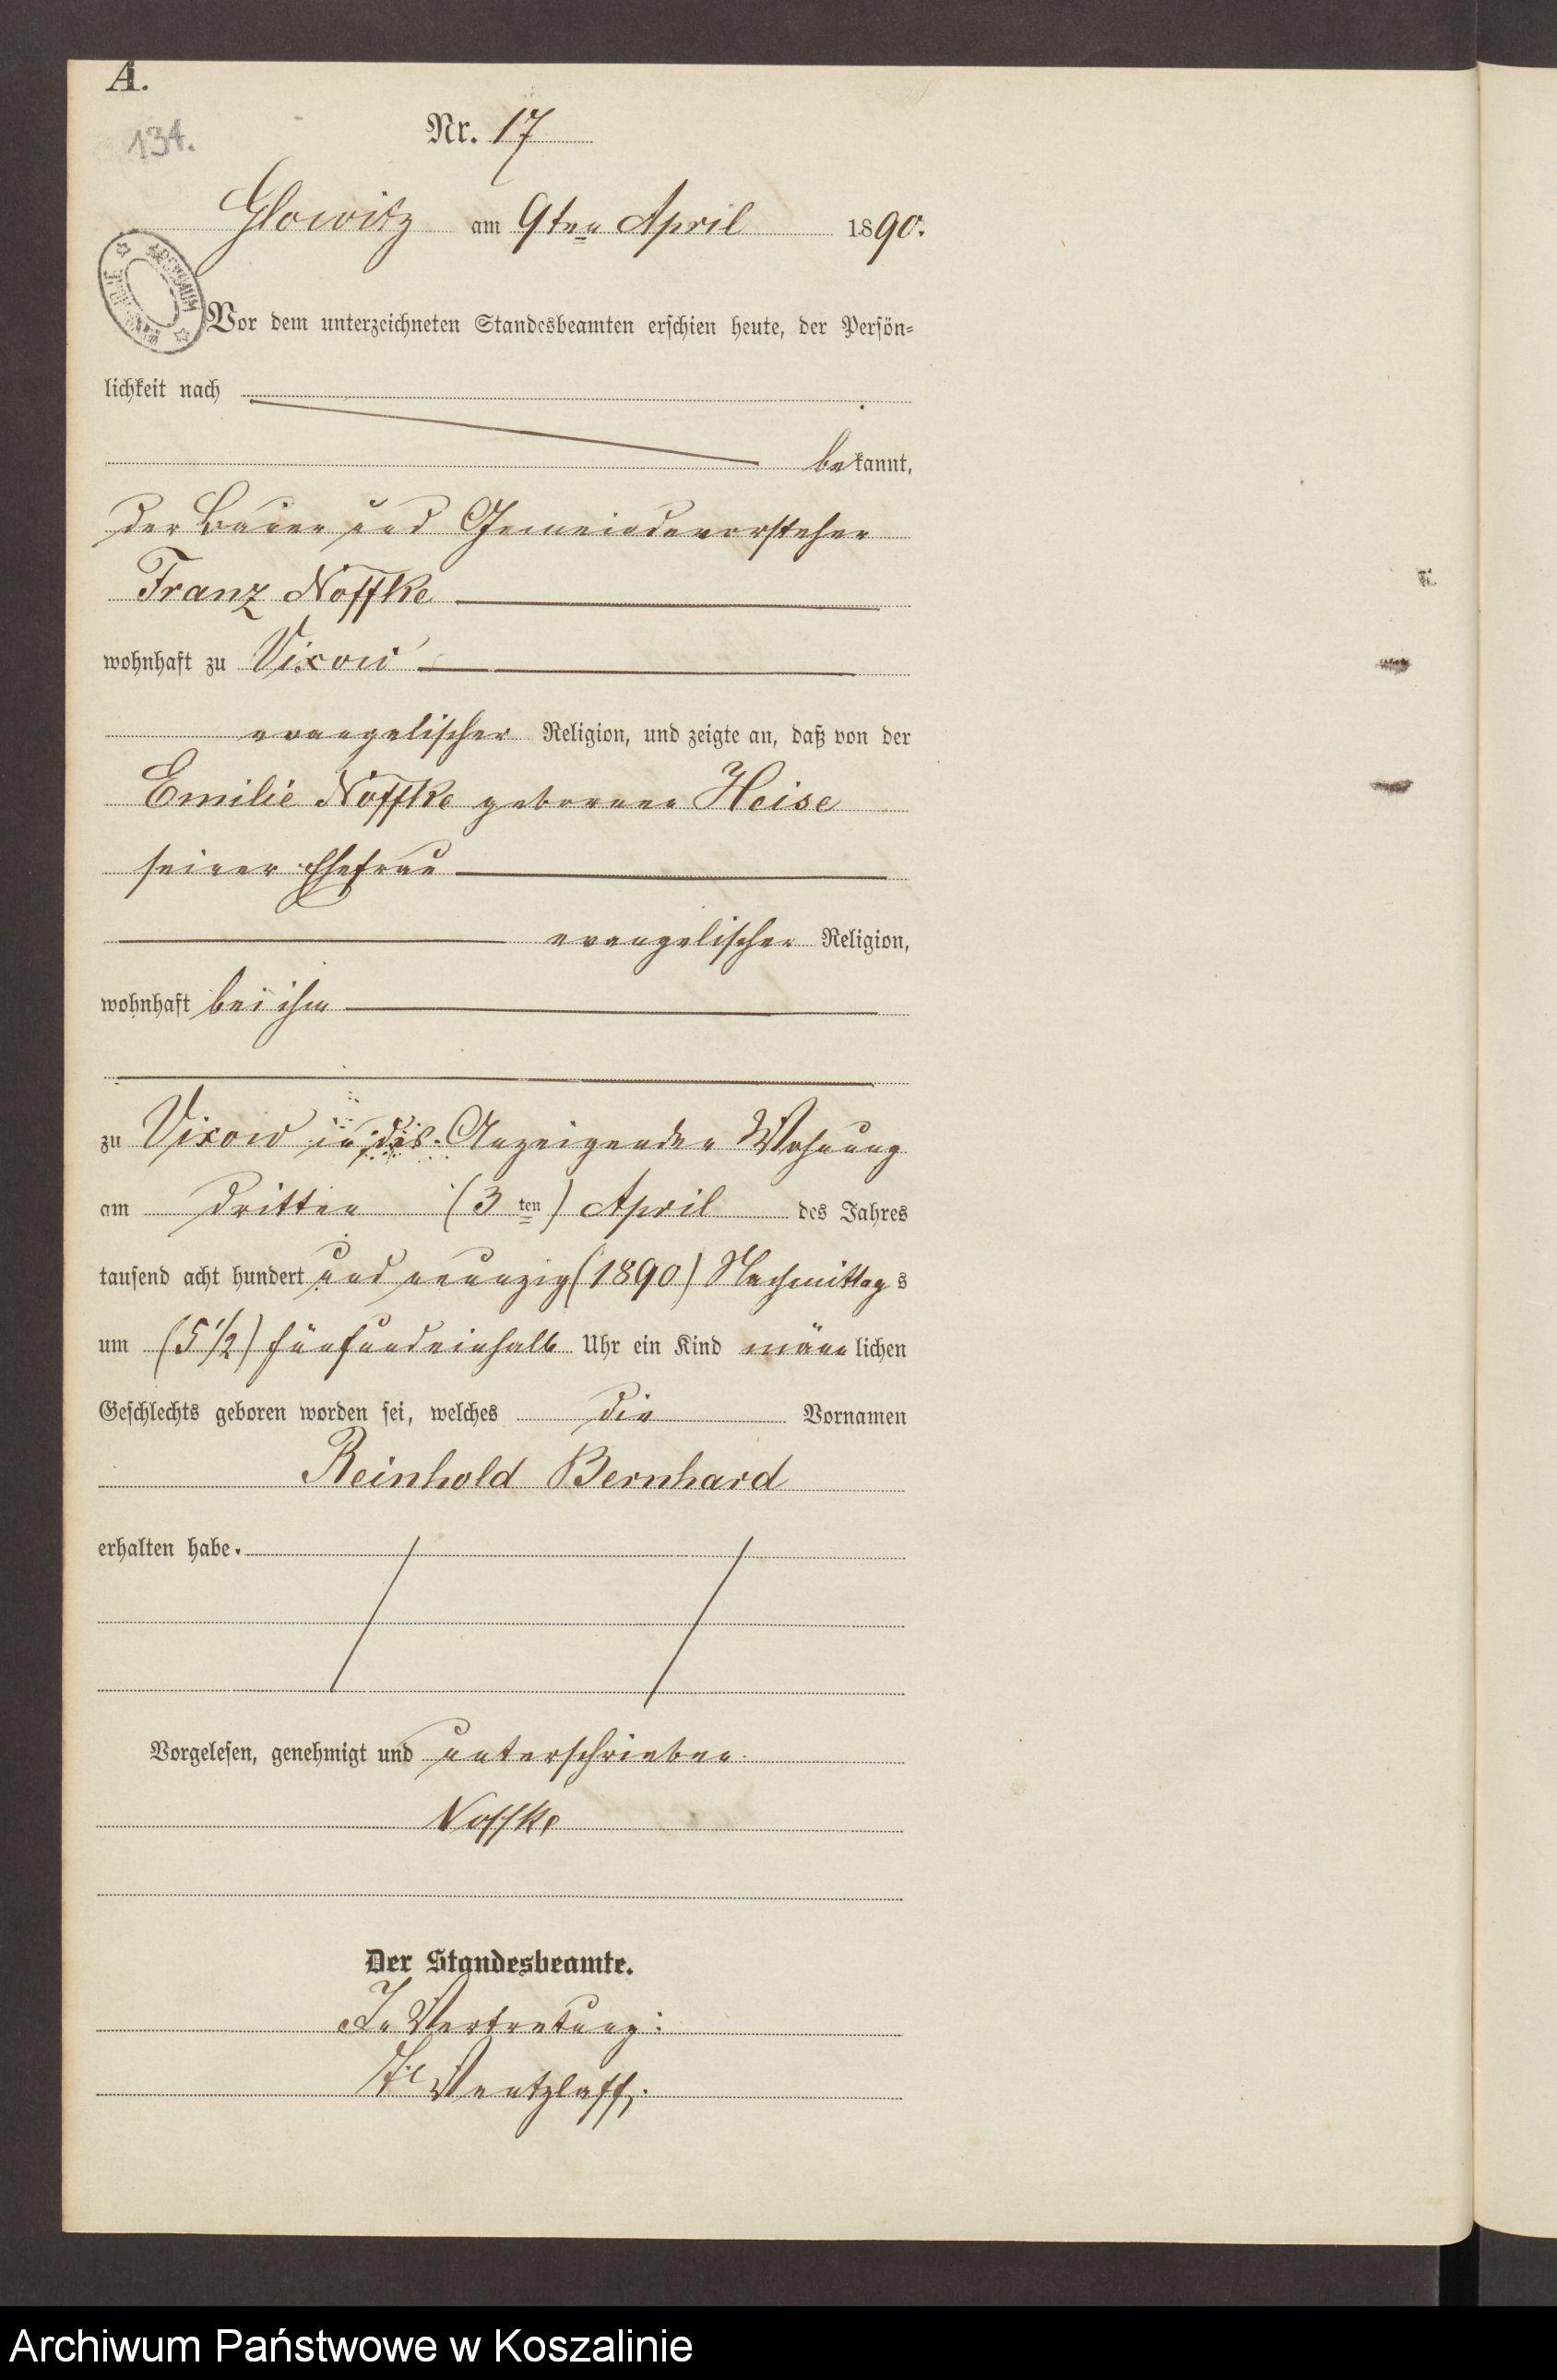 A.
134.
Nr. 17
Glowitz am 9ten April 1890.
Vor dem unterzeichneten Standesbeamten erschien heute, der Persön-
lichkeit nach
bekannt,
der Bauer und Gemeindevorsteher
Franz Noffke
wohnhaft zu Vixow
evangelischer Religion, und zeigte an, daß von der
Emilie Noffke geborenen Heise
seiner Ehefrau
evangelischer Religion,
wohnhaft bei ihm
zu Vixow in des Anzeigenden Wohnung
am dritten (3 ten) April des Jahres
tausend acht hundert und neunzig (1890) Nachmittags
um (5 1/2) fünfundeinhalb Uhr ein Kind männlichen
Geschlechts geboren worden sei, welches die Vornamen
Reinhold Bernhard
erhalten habe.
Vorgelesen, genehmigt und unterschrieben.
Noffke
Der Standesbeamte.
In Vertretung:
Wentzlaff.
Archiwum Państwowe w Koszalinie